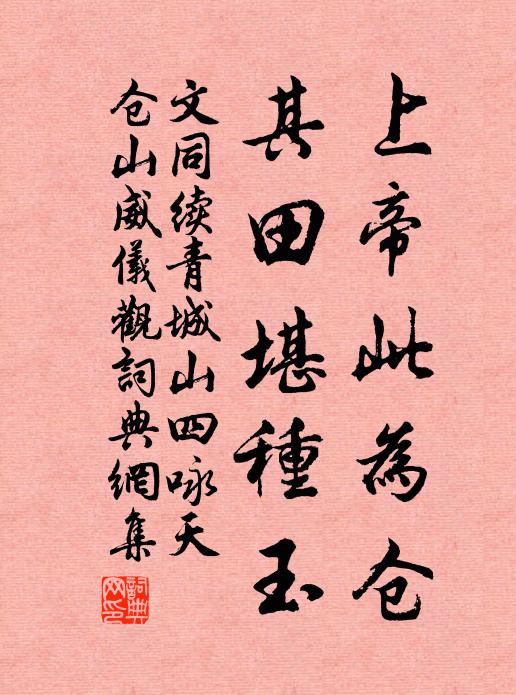 上帝此為仓
其田堪種玉
文同续青城山四咏天
仓山威儀觀詞典網集
詞典网印